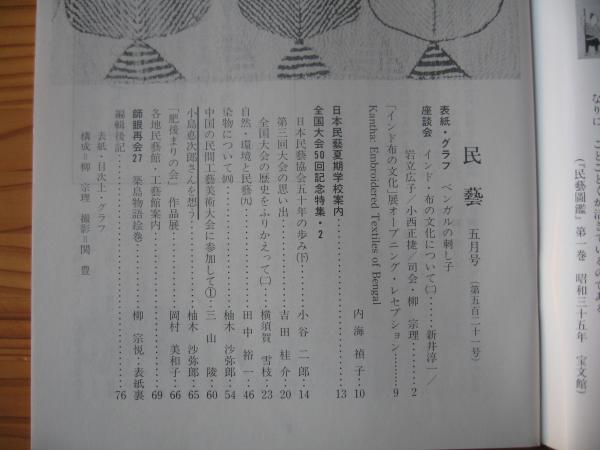 なりに、ことごとくが活きているのである
(『民藝圖鑑』第一巻 昭和三十五年 宝文館)
民藝 五月号 (第五百二十一号)
表紙・グラフ ベンガルの刺し子
座談会 インド・布の文化について(二)……新井淳一/
岩立広子/小西正捷/司会・柳 宗理……2
「インド布の文化」展オープニング・レセプション……9
Kantha Embroidered Textiles of Bengal
内海 禎子…10
日本民藝夏期学校案内……13
全国大会50回記念特集・2
日本民藝協会五十年の歩み(下)……小谷 二郎…14
第三回大会の思い出……吉田 桂介…20
全国大会の歴史をふりかえって(二)…横須賀 雪枝…23
自然・環境と民藝(九)……田中 裕一…46
染物について(四)……柚木 沙弥郎…54
中国の民間工藝美術大会に参加して①…三山 陵…60
小島悳次郎さんを想う……柚木 沙弥郎…65
「肥後まりの会」作品展……岡村 美和子…66
各地民藝館・工藝館案内……69
師眼再会27 築島物語絵巻……柳 宗悦・表紙裏
編輯後記……76
表紙・目次上・グラフ
構成=柳 宗理 撮影=関 豊